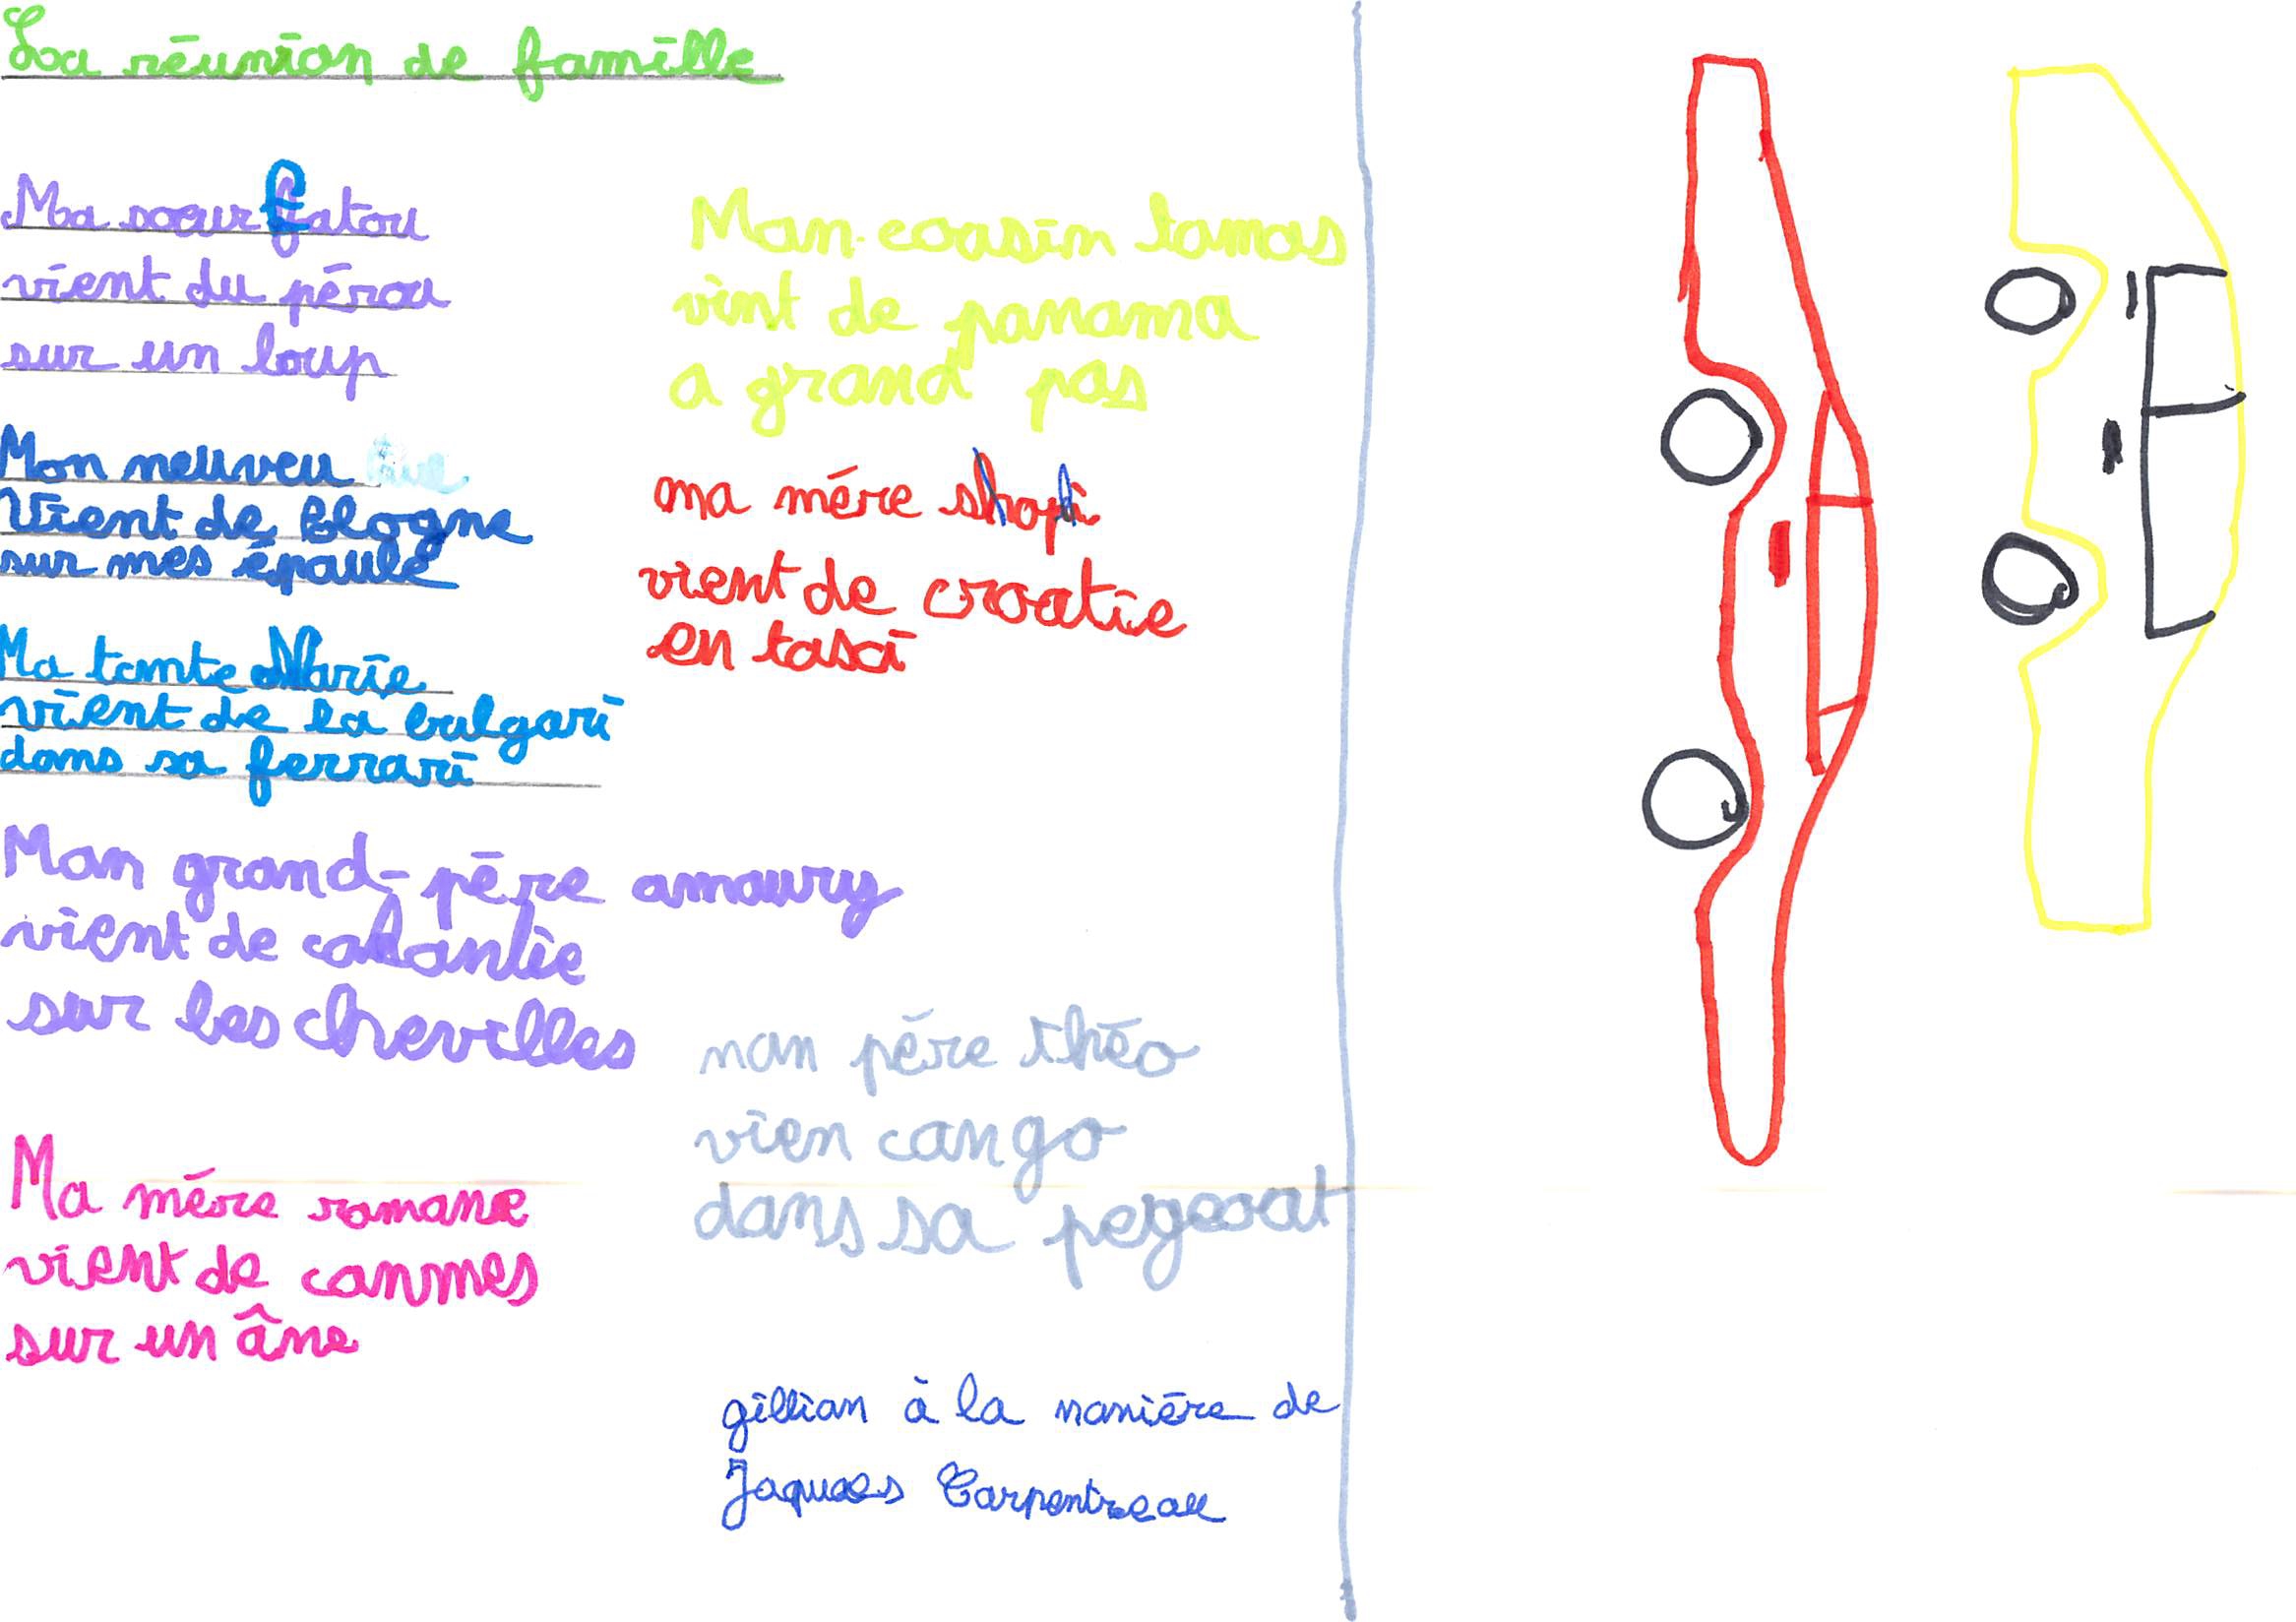 La réunion de famille
Ma sœur fatou
vient du pérou
sur un loup
Mon neuveu
Vient de Blogne
sur mes épaule
Ma tante Marie
vient de la bulgari
dans sa ferrari
Mon grand-père amaury
vient de
sur les chevilles
Ma mère romane
vient de canmes
sur un âne
Mon cousin tomas
vint de panama
a grand pas
ma mére
vient de croatie
en tasci
mon père théo
vien congo
dans sa pegeout
gillian à la manière de
Jaques Carpentreau